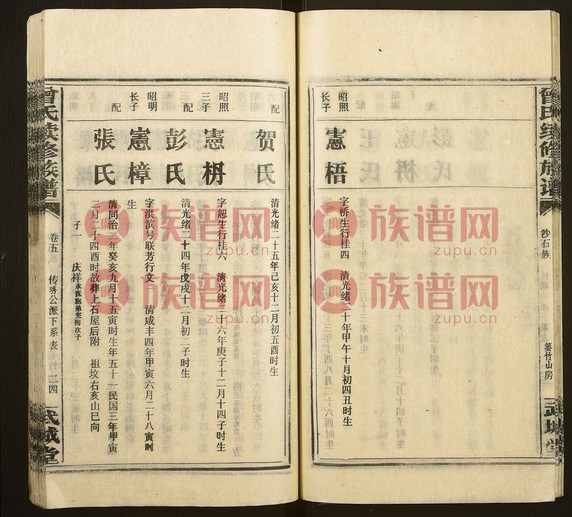 曾氏续修族谱
沙石族
娄竹山房
武城堂
昭照
长子
憲梧
字桥生行桂四 清光绪二十年甲午十月初四丑时生
配
贺氏
清光绪二十五年己亥十二月初五酉时生
昭照
三子
憲栩
字恕生行桂六 清光绪二十六年庚子十二月十四子时生
配
彭氏
清光绪二十四年戊戌十二月初二子时生
昭明
长子
憲樟
字洪滨号联芳行文一 清咸丰四年甲寅六月二十八寅时
生
配
張氏
清同治二年癸亥九月十五寅时生年五十一民国三年甲寅
二月二十四酉时故葬上石屋后附 祖坟右亥山巳向
子一 庆祥
曾氏续修族谱
卷五
传琇公派下系表
一四
武城堂
族谱网
zupu.cn
族谱网
zupu.cn
族谱网
zupu.cn
族谱网
zupu.cn